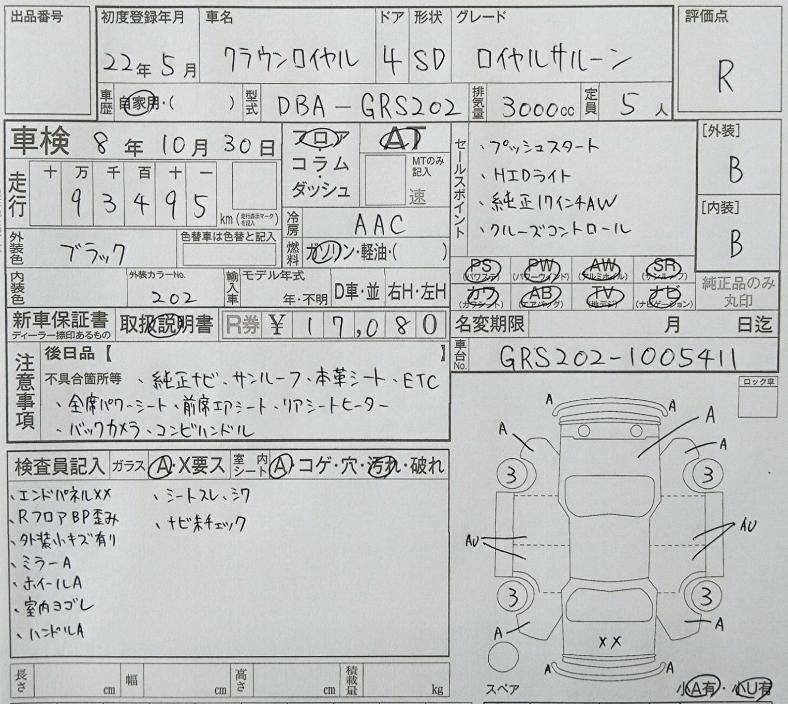 出品番号
初度登録年月 車名 ドア 形状 グレード 評価点
22年5月 クラウンロイヤル 4 SD ロイヤルサルーン R
車歴 自家用・( ) 型式 DBA-GRS202 排気量 3000cc 定員 5人
車検 8年10月30日
フロア・コラム・ダッシュ
AT
MTのみ記入 速
セールスポイント
・プッシュスタート
・HIDライト
・純正17インチAW
・クルーズコントロール
[外装]
B
[内装]
B
走行 十 万 千 百 十 一
93495 km (走行表示マークを記入)
冷房 AAC
外装色 ブラック 色替車は色替と記入
燃料 ガソリン・軽油・( )
PS (パワステ) PW (パワーウィンド) AW (アルミホイル) SR (サンルーフ)
カワ (カワシート) AB (エアバック) TV (地デジ) ナビ (ナビゲーション)
純正品のみ丸印
内装色 外装カラーNo. 202
輸入車 モデル年式 年・不明 D車・並 右H・左H
新車保証書 ディーラー捺印あるもの 取扱説明書 R券 ¥ 17,080
名変期限 月 日迄
車台No. GRS202-1005411
注意事項
後日品【 】
不具合箇所等 、純正ナビ、サンルーフ、本革シート、ETC
・全席パワーシート、前席エアシート、リアシートヒーター
・バックカメラ、コンビハンドル
ロック車
検査員記入 ガラス A・X要ス 室内シート A・コゲ・穴・汚れ・破れ
、エンドパネルXX 、シートスレ、シワ
、RフロアBP歪み 、ナビ未チェック
、外装小キズ有り
、ミラーA
、ホイールA
、室内ヨゴレ
、ハンドルA
A A
A A A
3 3
AU AU
3 3
A A
XX
A A
スペア
小A有・小U有
長さ cm 幅 cm 高さ cm 積載量 kg